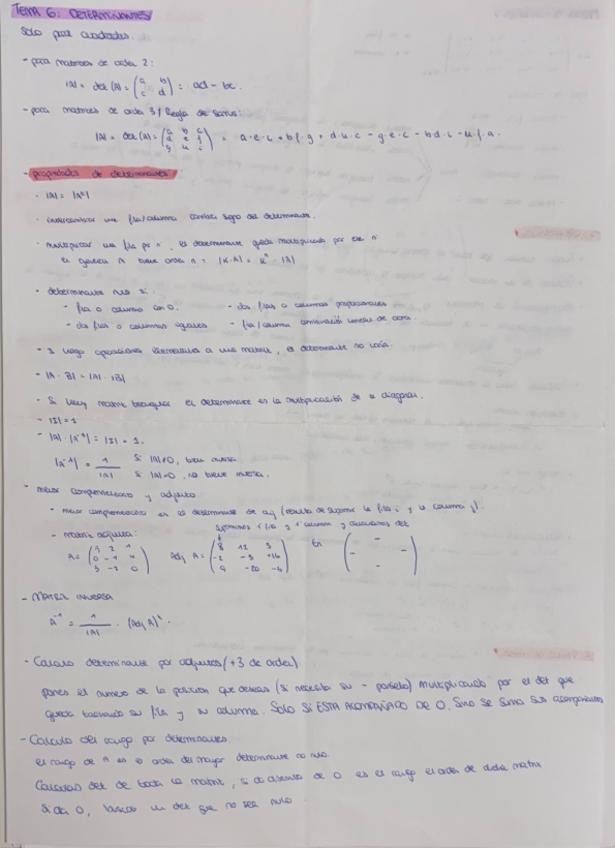 TEMA 6: DETERMINANTES
Solo para cuadradas.
- para matrices de orden 2:
|A| = det (A) = (a b / c d) = ad - bc.
- para matrices de orden 3 / Regla de Sarrus:
|A| = det (A) = (a b c / d e f / g h i) =
- propiedades de determinantes:
· |A| = |Aᵗ|
· intercambiar una fila/columna cambia signo del determinante.
· multiplicar una fila por n, el determinante queda multiplicado por ese n
si A tiene orden n = |K·A| = Kⁿ · |A|
· determinante nulo si:
- fila o columna con 0.
- dos filas o columnas proporcionales
- dos filas o columnas iguales
- fila/columna combinación lineal de otra.
- si hago operaciones elementales a una matriz, el determinante no varía.
- |A · B| = |A| · |B|
- Si hay matriz triangular el determinante es la multiplicación de la diagonal.
- |I| = 1
- |A| · |A⁻¹| = |I| = 1.
|A⁻¹| = 1 / |A|
Si |A|≠0, tiene inversa
Si |A|=0, no tiene inversa.
- menor complementario y adjunto
- menor complementario es el determinante de aij (resulta de suprimir la fila i y la columna j).
suprimimos 1 fila y 1 columna y calculamos det
- matriz adjunta:
Adj A =
- MATRIZ INVERSA
A⁻¹ = 1 / |A| · (Adj A)ᵗ
- Calculo determinante por adjuntos (+3 de orden)
pones el numero de la posicion que deseas (si necesita su - ponselo) multiplicando por el det que
queda tachando su fila y su columna. SOLO SI ESTA ACOMPAÑADO DE 0. Sino se suma sus acompañantes
- Calculo del rango por determinantes
el rango de A es el orden del mayor determinante no nulo.
Calculas det de toda la matriz, si da distinto de 0 es el rango el orden de dicha matriz
Si da 0, buscas un det que no sea nulo